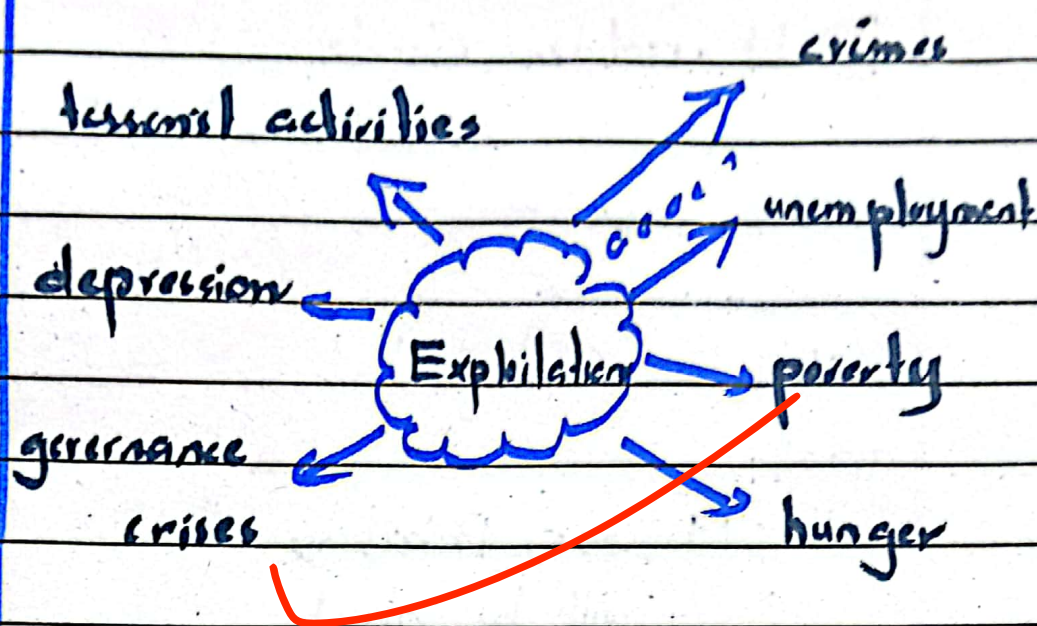 crimes
terrorist activities
unemployment
depression
Exploitation
poverty
governance
crises
hunger